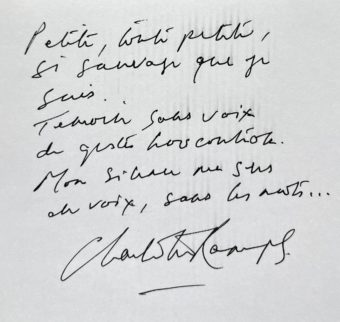 Petite, toute petite,
si sauvage que je
suis.
Témoin sans voix
de gestes hors contrôle.
Mon silence me sers
de voix, sans les mots...
Charlotte Rampling.